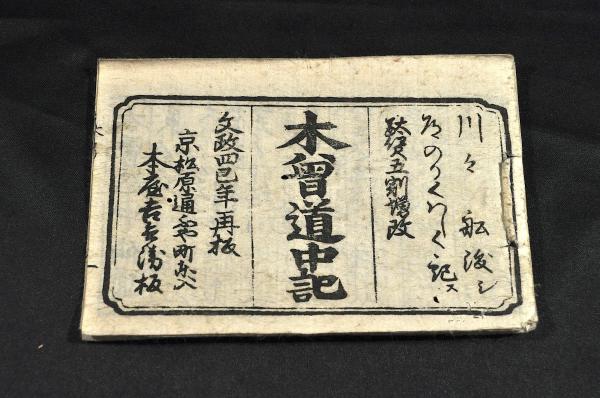 川々 舩渡シ
道のりくハしく記ス
駄賃五割増改
木曾道中記
文政四巳年再板
京松原通
本屋吉兵衛板